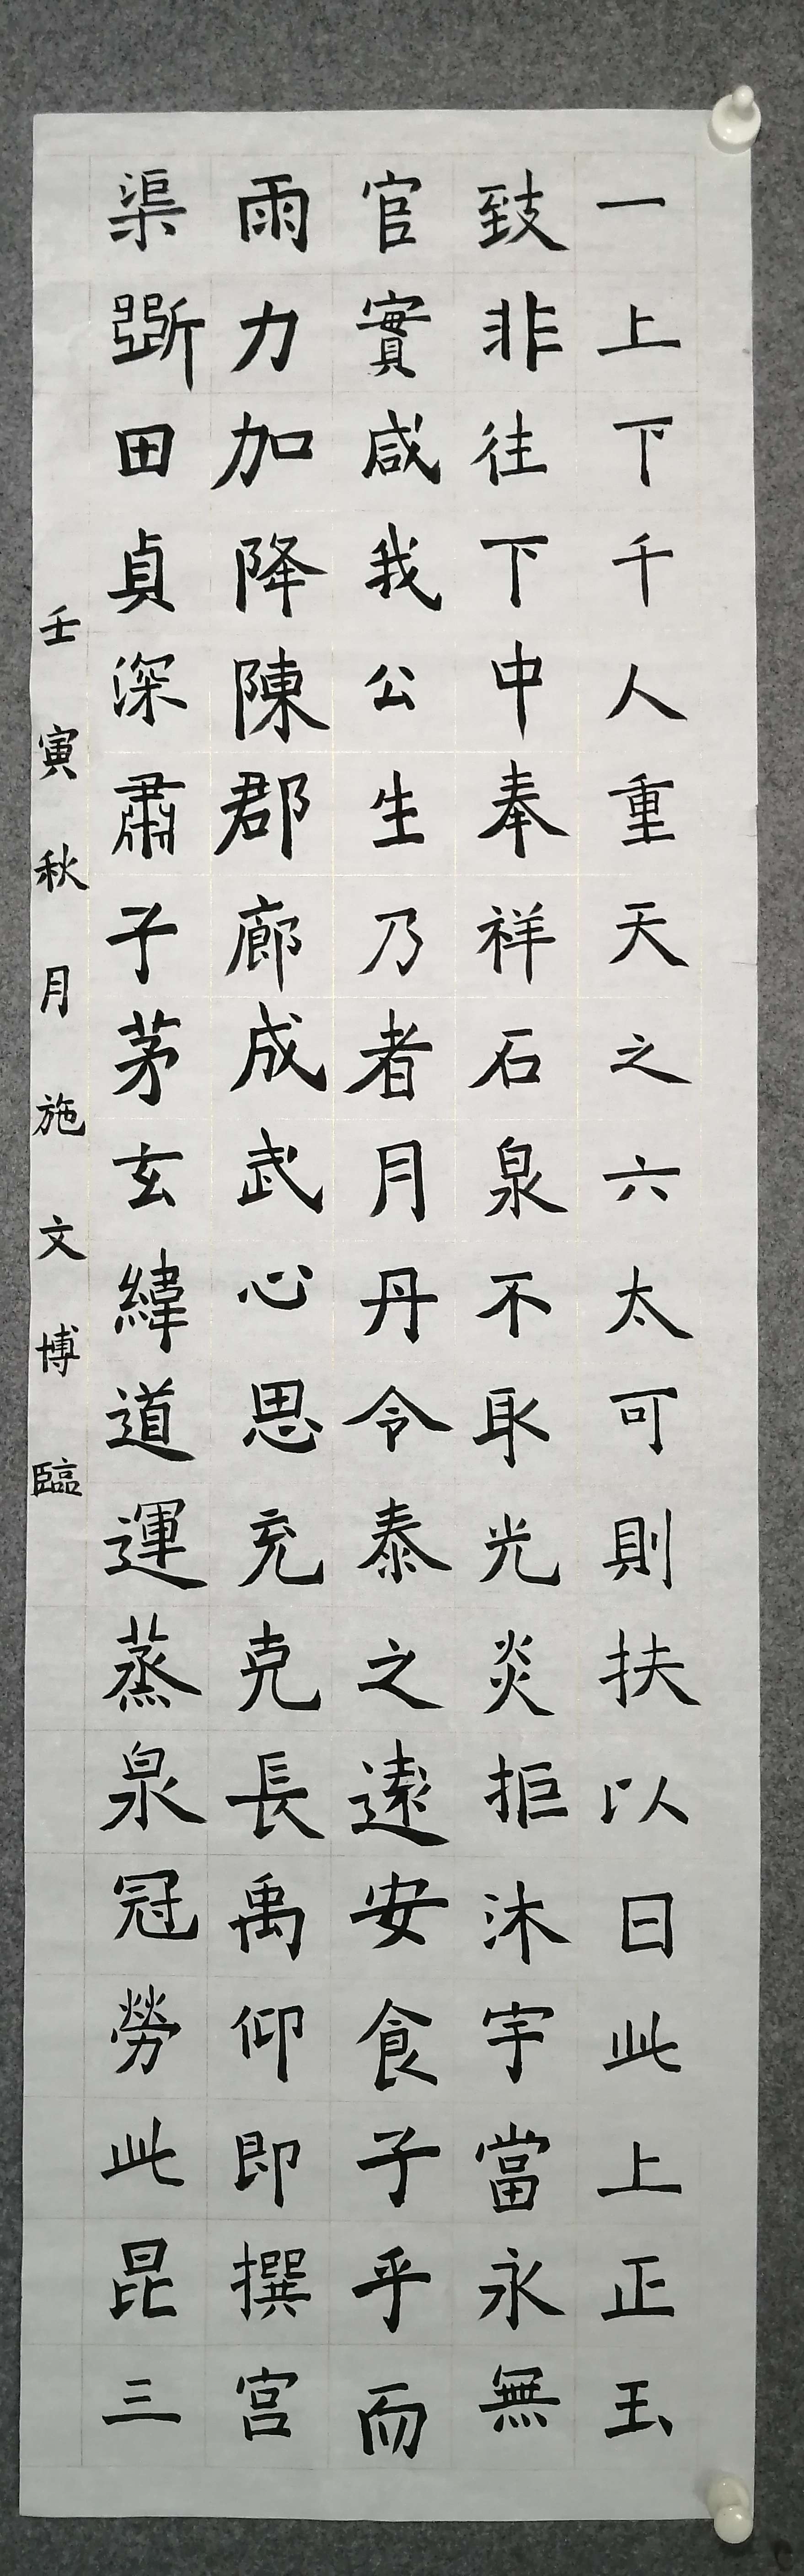 一上下千人重天之六太可則扶以日此上正玉
致非往下中奉祥石泉不取光炎拒沐宇當永無
官實咸我公生乃者月丹令泰之遠安食子乎而
雨力加降陳郡廊成武心思充克長禹仰即撰宫
渠斲田貞深肅子茅玄緯道運蒸泉冠勞此昆三
壬寅秋月施文博臨